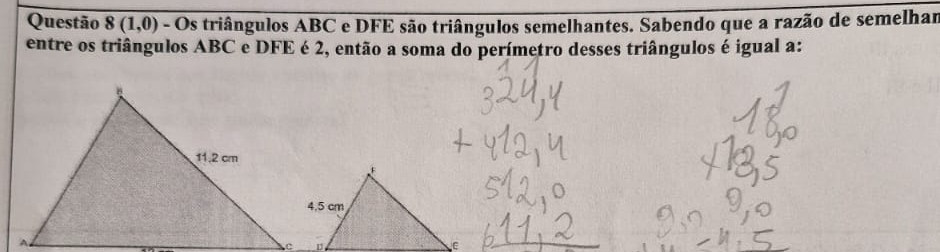 Questão 8 (1,0) - Os triângulos ABC e DFE são triângulos semelhantes. Sabendo que a razão de semelhan
entre os triângulos ABC e DFE é 2, então a soma do perímetro desses triângulos é igual a:
B
11,2 cm
A
C
F
4,5 cm
D
E
11
324,4
+ 412,4
512,0
611,2
1
18,0
13,5
9,0
4,5